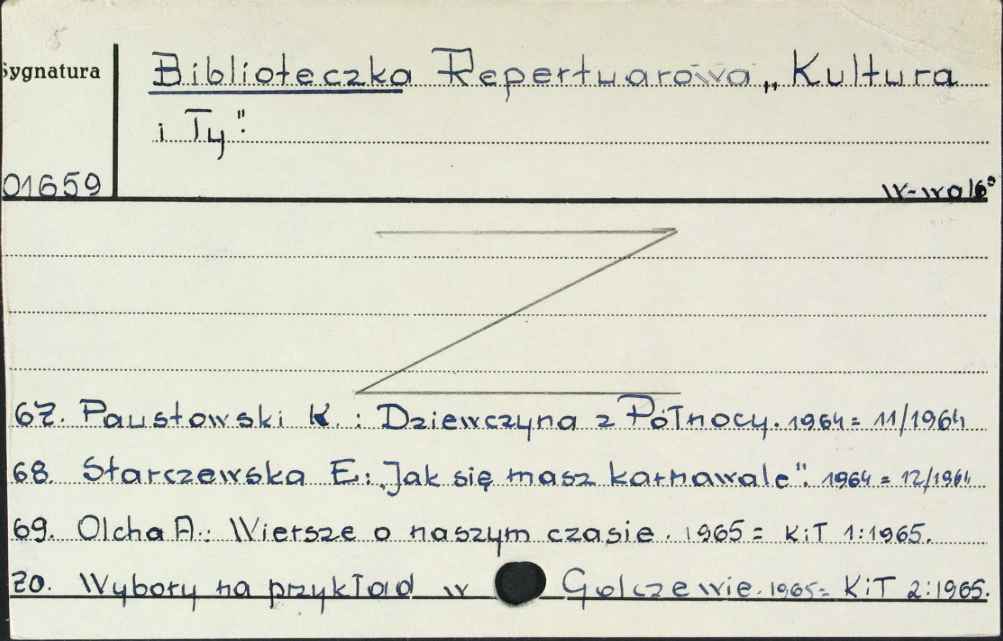 Sygnatura
Biblioteczka Repertuarowa „Kultura
i Ty".
01659
W-wa
67. Paustowski K. : Dziewczyna z Północy. 1964 = 11/1964
68. Starczewska E: „Jak się masz karnawale". 1964 = 12/1964
69. Olcha A.: Wiersze o naszym czasie. 1965 = KiT 1:1965.
70. Wybory na przykład w Golczewie. 1965 = KiT 2:1965.